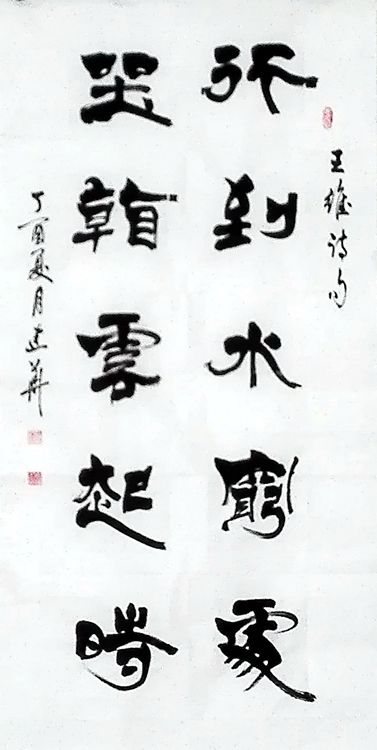 王維诗句
行到水窮處
坐看雲起時
丁酉夏月建華